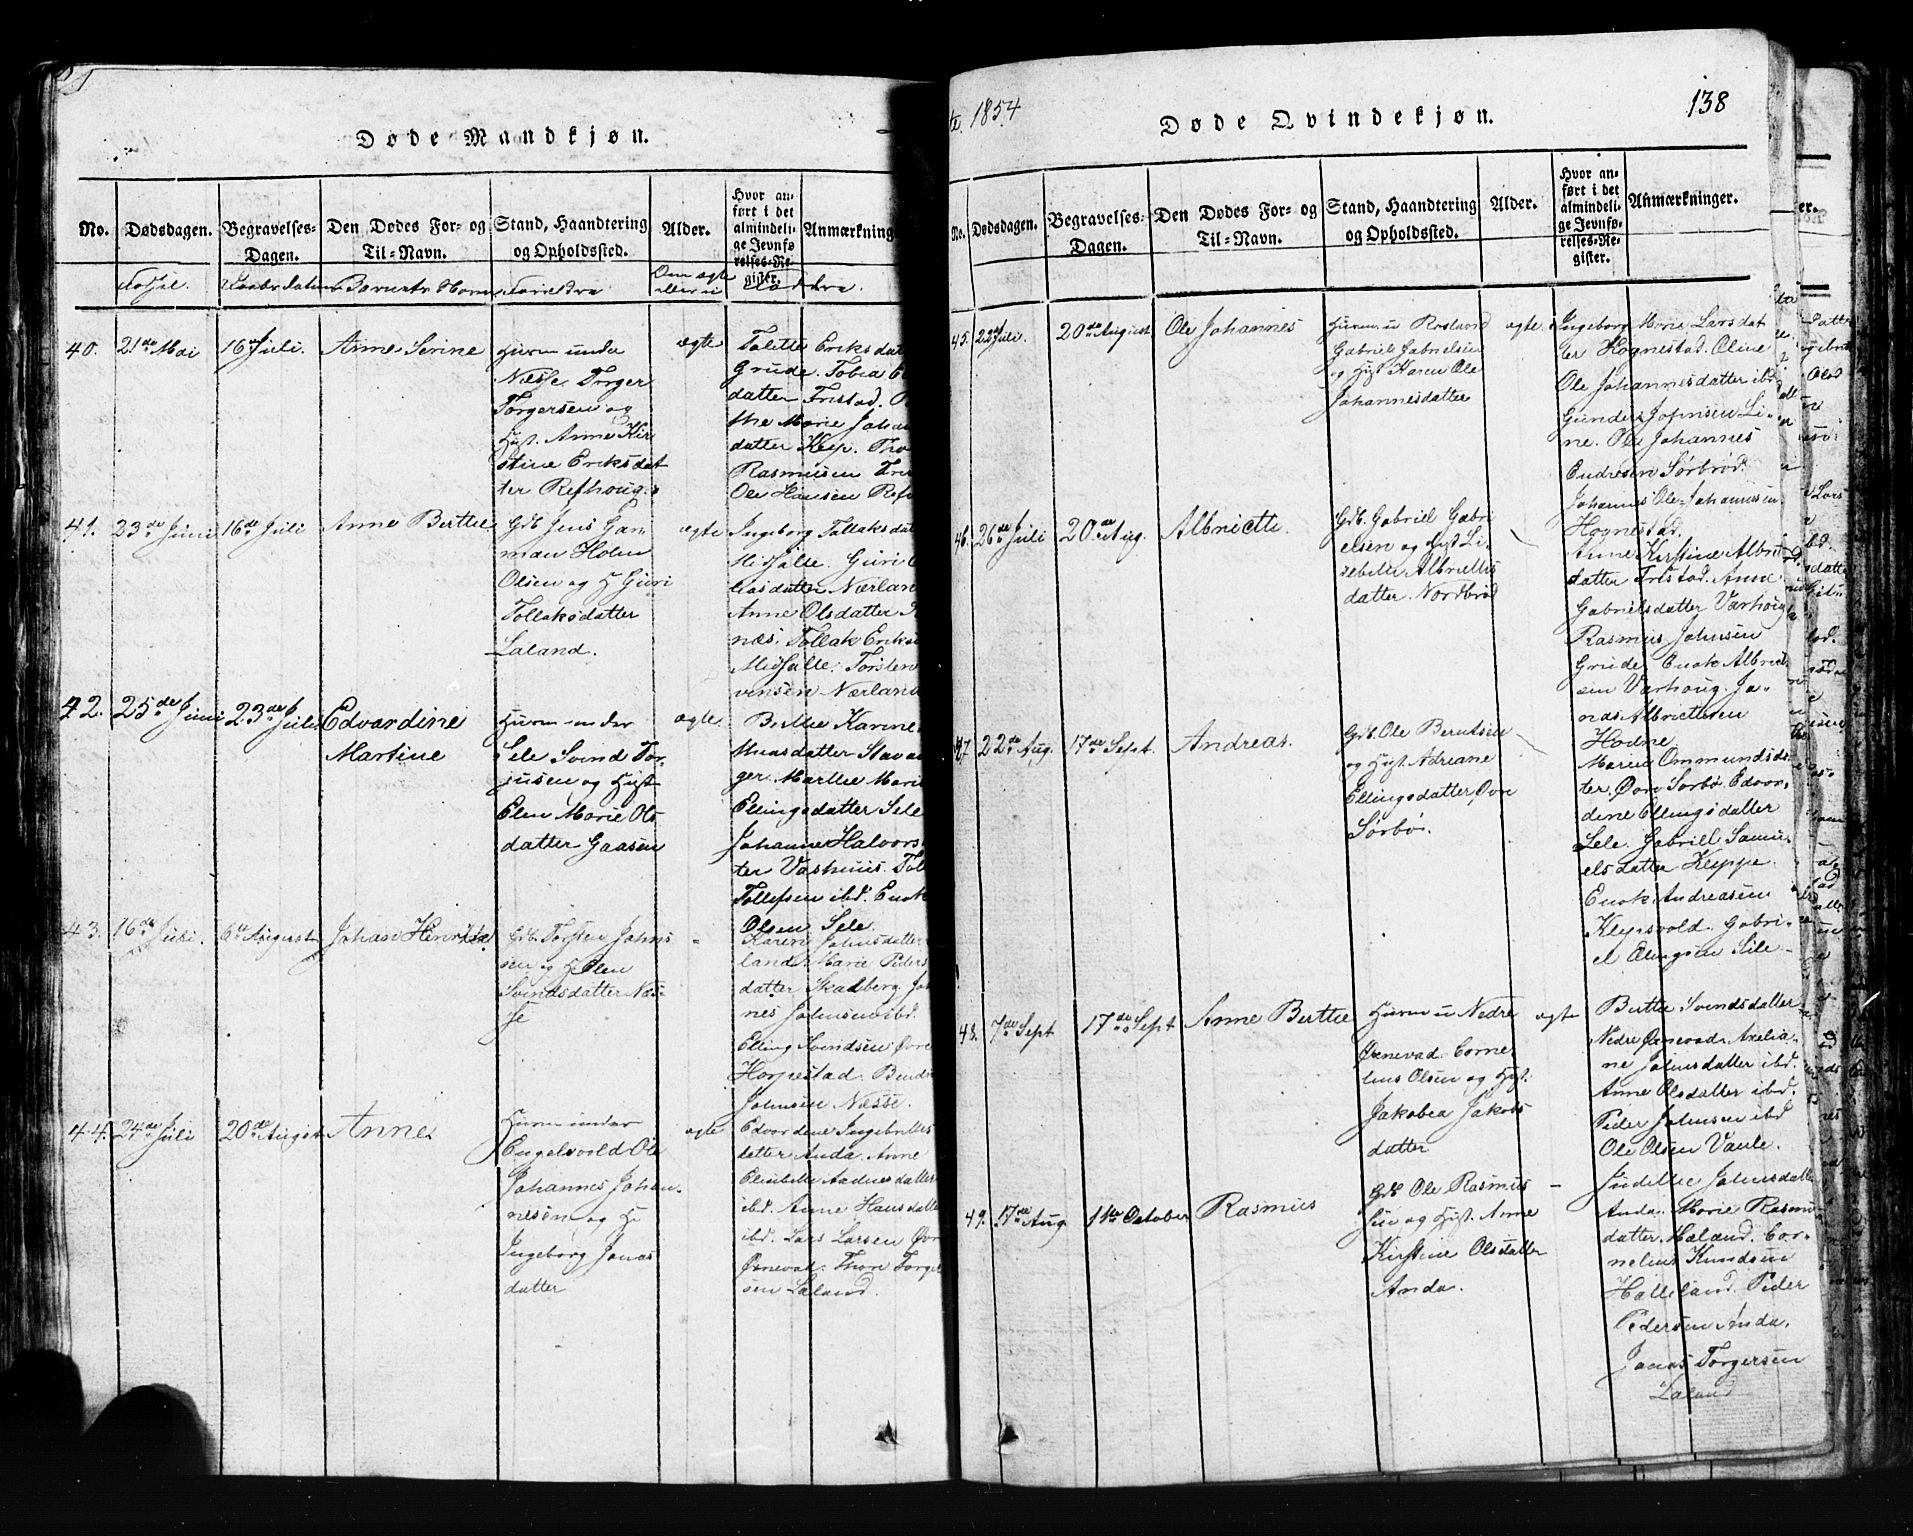 Døde Mandkjøn.
No. Dødsdagen. Begravelses-Dagen. Den Dødes For- og Til-Navn. Stand, Haandtering og Opholdssted. Alder. Hvor anført i det almindelige Jevnførelses-Register. Anmærkning
Daabsdatum Barnets Forældre Om ægte eller u
40. 21de Mai 16 Juli. Anne Serine
Huusm under
Næsse Torger
Torgersen og
Hust. Anne Kir
stine Eriksdat
ter Refhoug.
ægte
Tolette Eriksdat
Grude. Tobia
datter Fristad.
the Marie Johan
datter Klep. Tho
Rasmusen Fri
Ole Hansen Ref
41. 23de Juni 16de Juli Anne Berthe
Grdb. Jens Gar
man Holm
Olsen og H Guri
Tollaksdatter
Laland.
ægte
Ingeborg Tollaksdat
Midjalte. Guri
liasdatter Nærlan
Anne Olsdatter
næs. Tollak Eriks
Midjalte. Torsten
vensen Nærland
42. 25de Juni 23de Juli Edvardine
Martine
Huusm under
Sele Svend Tor
jusen og Hust
Elen Marie Ols
datter Gaasen
ægte
Berthe Karine
datter Stavan
ger. Marthe Mari
Ellingsdatter Sele
Johanne Halvors
ter Vashuus. Tol
Tollefsen ibd. Enok
Olsen Sele.
43. 16de Juli. 6te August Johan Henrik
Grdb. Torsten Johns
sen og H Elen
Svendsdatter Næs-
se
Karen Johnsdatter
land. Marie Peders
datter Skadberg. Joh
nes Johnsen ibd.
Elling Svendsen Øvre
Horpestad. Bendi
Johnsen Næsse.
44. 24de Juli 20de August Anne
Huusm under
Engelsvold Ole
Johannes Johan
nesen og H
Ingeborg Jonas
datter
ægte
Edvardene Ingebrittes
datter Anda. Anne
Elisabetta Aadnesdatter
ibd. Anne Hansdatter
ibd. Lars Larsen Øvr
Ørnevad. Thore Torgel
sen Laland.
1854
Døde Qvindekjøn.
138
No. Dødsdagen. Begravelses-Dagen. Den Dødes For- og Til-Navn. Stand, Haandtering og Opholdssted. Alder. Hvor anført i det almindelige Jevnførelses-Register. Anmærkninger.
45. 22de Juli. 20de August Ole Johannes
Huusm u
Gabriel Gabrielsen
og Hust Karen Ole
Johannesdatter
ægte
Ingeborg Marie Larsdat
ter Hognestad. Oline
Ole Johannesdatter ibd
Gunder Johnsen Li-
ne. Ole Johannes
Endresen Sørbrød
Johannes Ole Johannesen
Hognestad.
46. 26de Juli 20de Aug. Albricht.
Grdb. Gabriel Gabri
elsen og Hust Li-
sebette Albriths
datter Nordbrød
Anne Kirstine Albrit
datter Fristad. Anne
Gabrielsdatter Varhoug
Rasmus Johnsen
Grude. Enok Albrit
sen Varhoug. Jo-
nas Albrithsen
Hodne
47. 22de Aug. 17de Sept. Andreas.
Grdb. Ole Berntsen
og Hust. Adriane
Ellingsdatter Øvre
Sørbø.
Maren Ommundsdat
ter Øvre Sørbø Edvar
dine Ellingsdatter
Sele. Gabriell Samu
elsdatter Kleppe.
Enok Andreasen
Klepsvold. Gabri-
el Ellingsen Sele
48. 7de Sept 17de Sept Anne Berthe
Huusm u Nedre
Ørnevad. Corne
lius Olsen og Hust.
Jakobea Jakobs
datter
ægte
Berthe Svendsdatter
Nedre Ørnevad. Axelia-
ne Johnsdatter ibd.
Anne Olsdatter ibd.
Peder Johnsen ibd
Ole Olsen Vaule.
49. 17de Aug. 1te October Rasmus
Grdb Ole Rasmus
sen og Hust. Anne
Kirstine Olsdatter
Anda.
Johnsdatter
Anda. Marie Rasmu
datter. Haland. Cor-
nelius Knudsen
Halleland. Peder
Pedersen Anda.
Jonas Torgersen
Laland